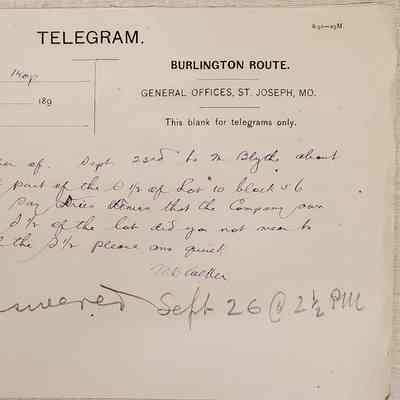 8-90-25M.
TELEGRAM.
BURLINGTON ROUTE.
189
GENERAL OFFICES, ST. JOSEPH, MO.
This blank for telegrams only.
of. Sept 23rd to W Blythe about
part of the S 1/2 of Lot 10 block 56
Say that the Company own
1/2 of the lot did you not mean to
the S 1/2 please ans quick
Sept 26 @ 2 1/2 PM